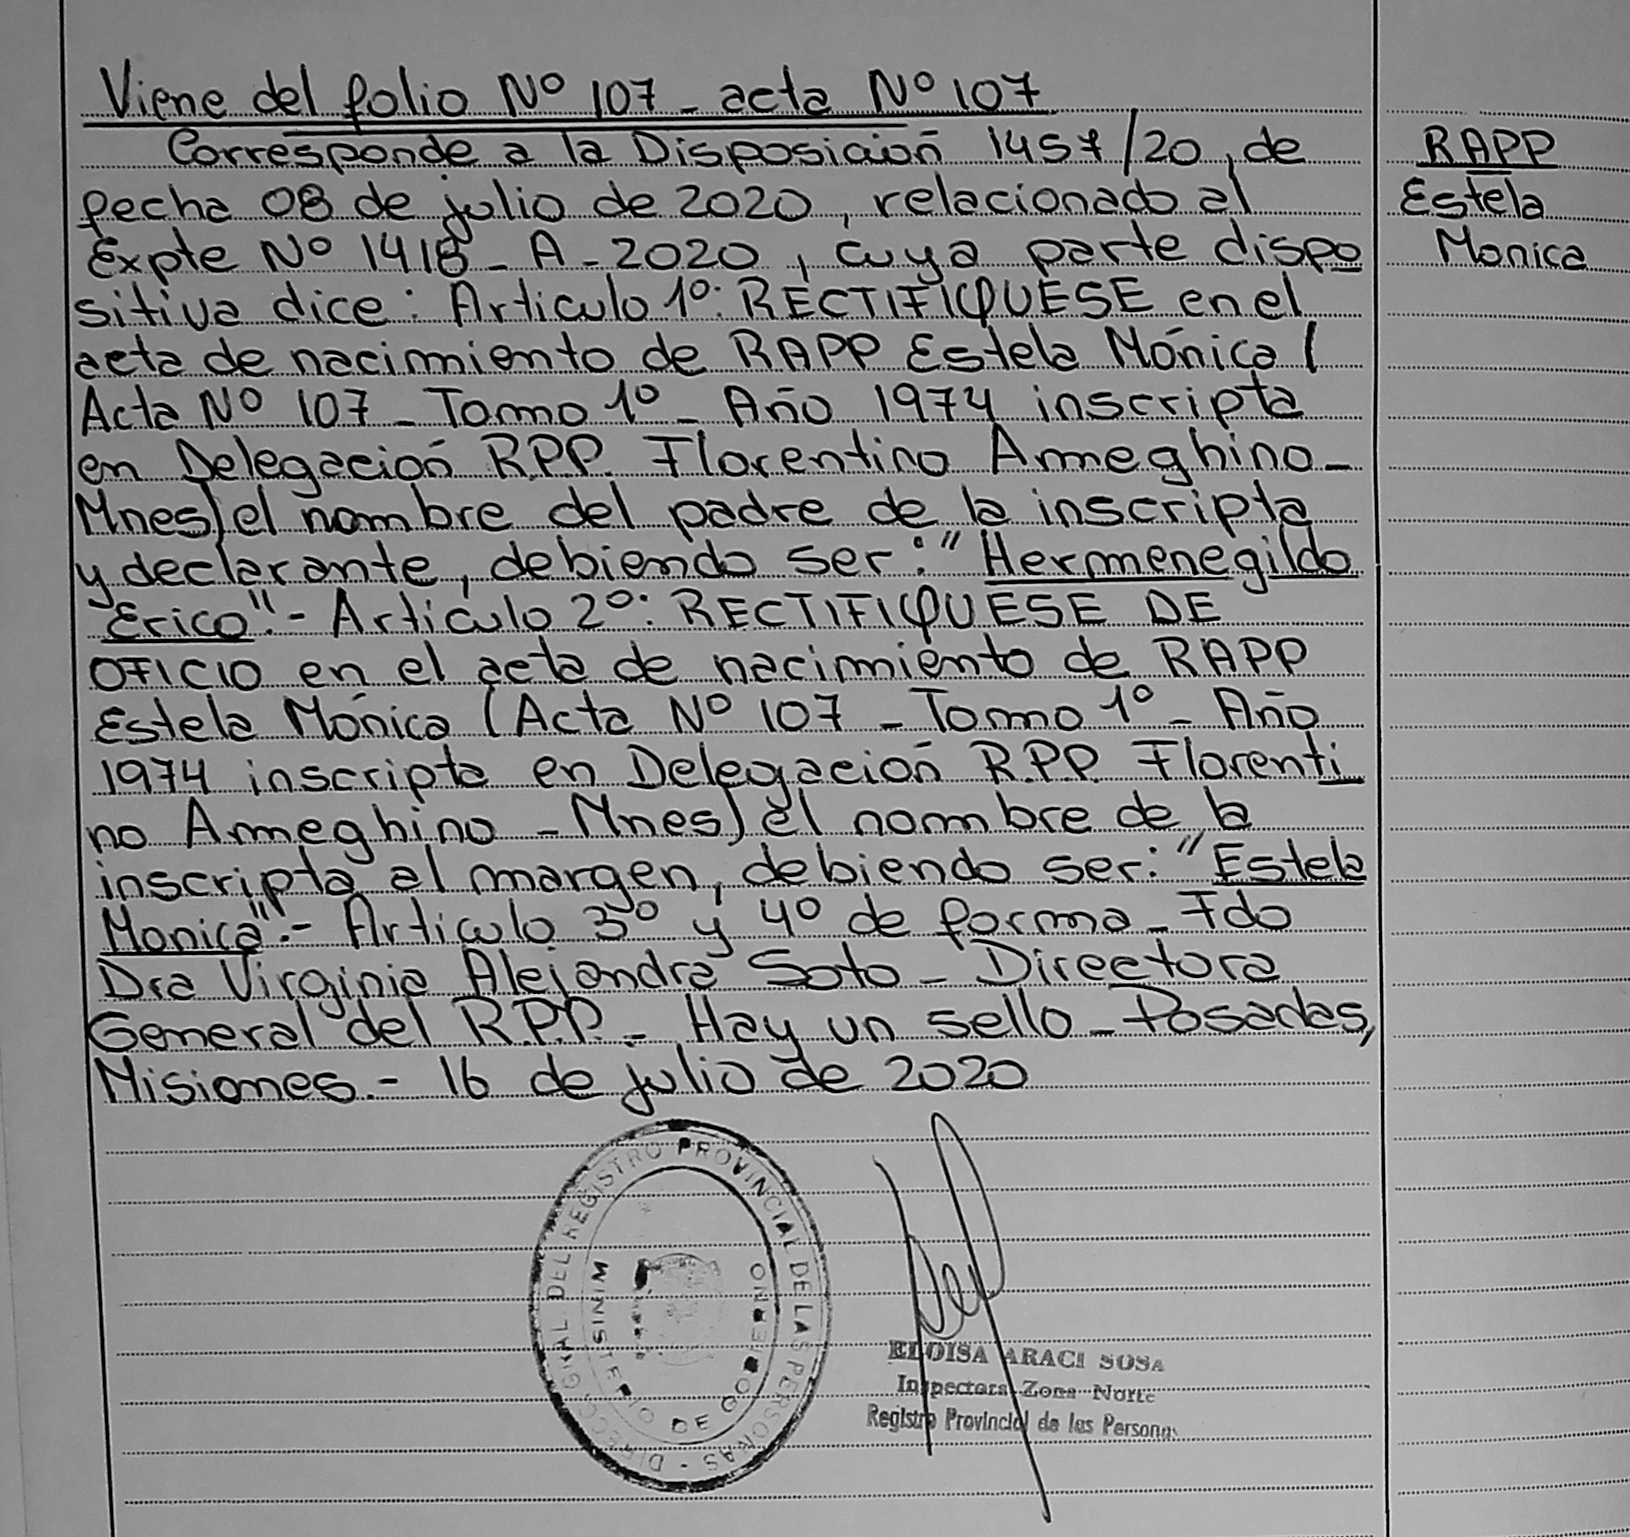 Viene del folio Nº 107 - acta Nº 107
Corresponde a la Disposición 1457/20, de
fecha 08 de julio de 2020, relacionado al
Expte Nº 1418 - A - 2020, cuya parte dispo
sitiva dice: Articulo 1º: RECTIFIQUESE en el
acta de nacimiento de RAPP Estela Mónica (
Acta Nº 107 - Tomo 1º - Año 1974 inscripta
en Delegación R.P.P. Florentino Ameghino -
Mnes) el nombre del padre de la inscripta
y declarante, debiendo ser: "Hermenegildo
Erico".- Artículo 2º: RECTIFIQUESE DE
OFICIO en el acta de nacimiento de RAPP
Estela Mónica (Acta Nº 107 - Tomo 1º - Año
1974 inscripta en Delegación R.P.P. Florenti
no Ameghino - Mnes) el nombre de la
inscripta al margen, debiendo ser: "Estela
Monica".- Artículo 3º y 4º de forma - Fdo
Dra Virginia Alejandra Soto - Directora
General del R.P.P. - Hay un sello - Posadas,
Misiones.- 16 de julio de 2020
RAPP
Estela
Monica
DIRECC. GRAL DEL REGISTRO PROVINCIAL DE LAS PERSONAS -
MINISTERIO DE GOBIERNO
ELOISA ARACI SOSA
Inspectora Zona Norte
Registro Provincial de las Personas